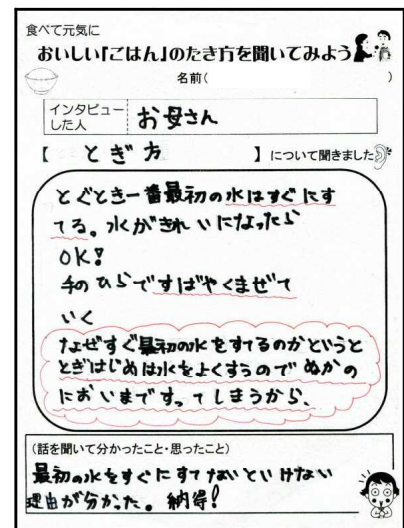 食べて元気に
おいしい「ごはん」のたき方を聞いてみよう
名前( )
インタビューした人 お母さん
【 とぎ方 】について聞きました
とぐとき一番最初の水はすぐにす
てる。水がきれいになったら
OK!
手のひらですばやくまぜて
いく
なぜすぐ最初の水をすてるのかというと
とぎはじめは水をよくすうので ぬかの
においまですってしまうから、
(話を聞いて分かったこと・思ったこと)
最初の水をすぐにすてないといけない
理由が分かった。納得!